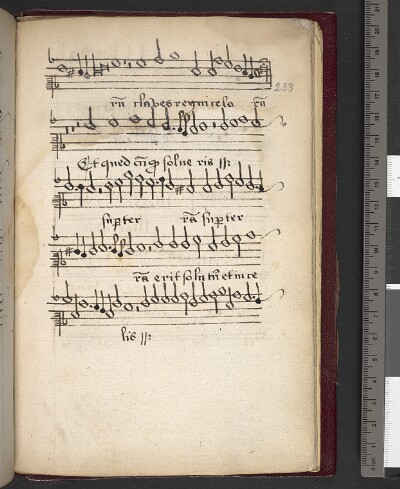 233
rū claves regni celo rū
Et quodcūq̄ solue ris ij:
sup̄ter rā sup̄ter
rā erit solutū et in ce
lis ij: